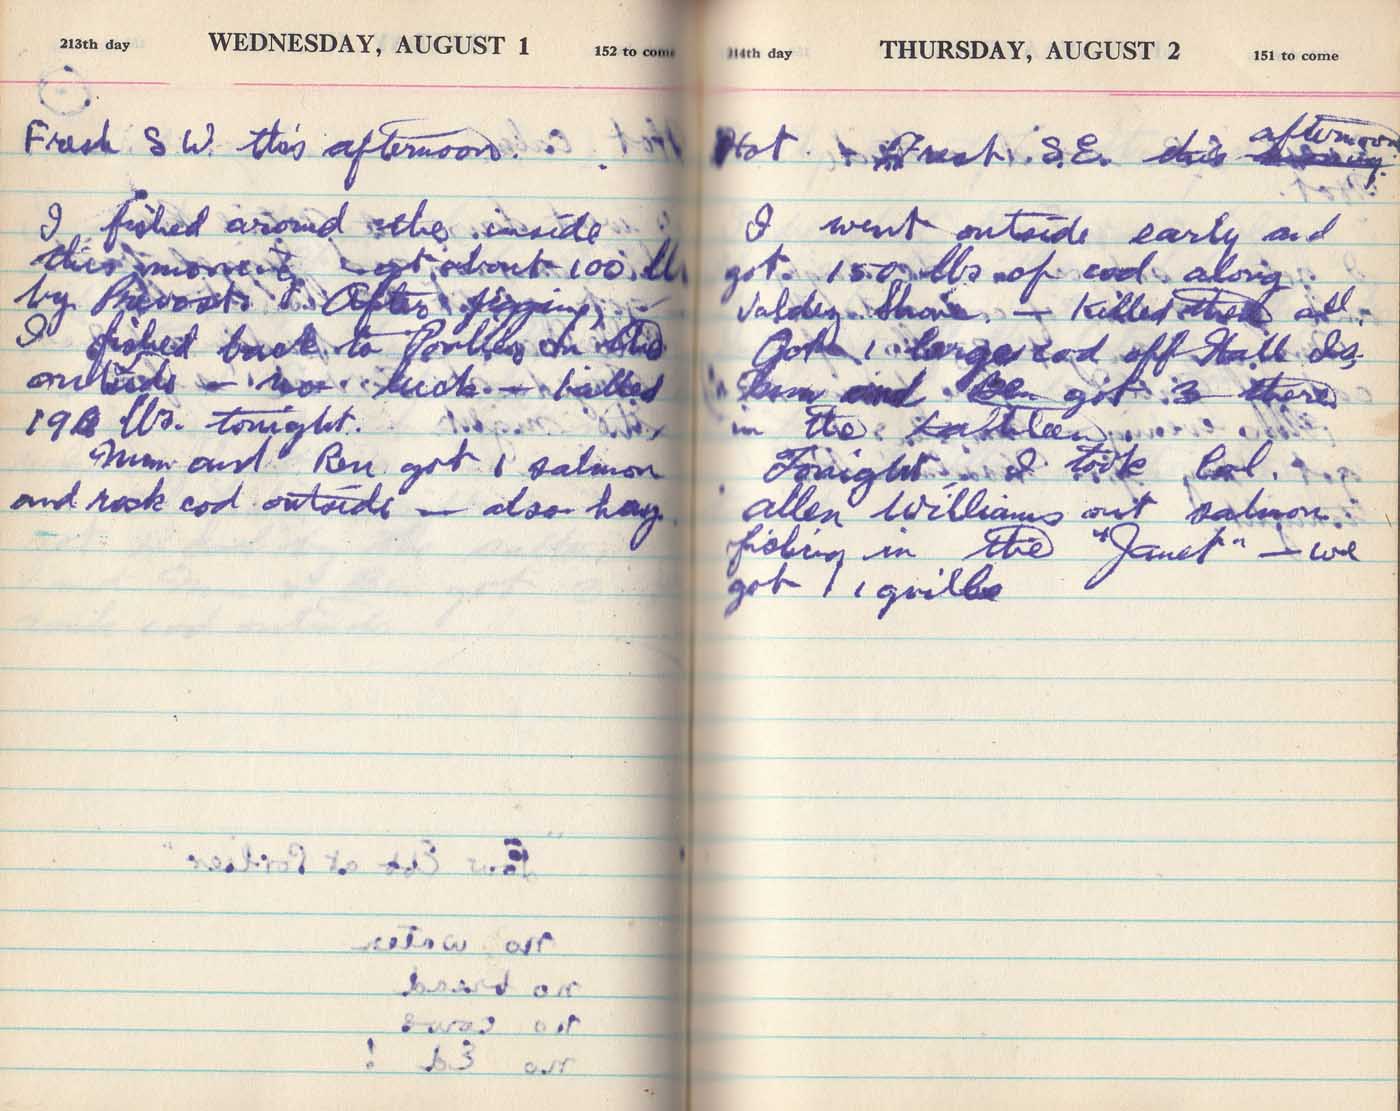 213th day WEDNESDAY, AUGUST 1 152 to come
Fresh S W. this afternoon.
I fished around the inside
this morning - got about 100 lbs
by Prevost. After jigging,
I fished back to Porlier on the
outside - no luck - killed
198 lbs. tonight.
Mum and Ben got 1 salmon
and rock cod outside - also hay.
"Low Ebb at Porlier"
no water
no bread
no cows
no Ed !
214th day THURSDAY, AUGUST 2 151 to come
Hot. - Fresh S.E. this afternoon
I went outside early and
got 150 lbs of cod along
Valdez Shore. - Killed them all.
Got 1 large cod off Hall Is.
Mum and Ben got 3 there
in the Kathleen.
Tonight I took Col.
Allen Williams out salmon
fishing in the "Janet" - we
got 1 grilse